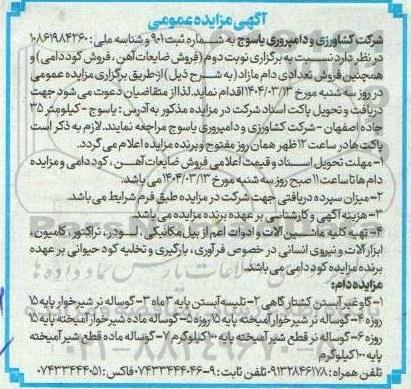 آگهی مزایده عمومی
شرکت کشاورزی و دامپروری یاسوج به شماره ثبت ۹۰۱ و شناسه ملی: ۱۰۸۶۱۹۸۴۲۶۰
در نظر دارد نسبت به برگزاری نوبت دوم (فروش ضایعات آهن، فروش کود دامی) و
همچنین فروش تعدادی دام مازاد (به شرح ذیل) از طریق برگزاری مزایده عمومی
در روز سه شنبه مورخ ۱۴۰۴/۰۳/۱۳ اقدام نماید. لذا از متقاضیان دعوت می شود جهت
دریافت و تحویل پاکت اسناد شرکت در مزایده مذکور به آدرس: یاسوج - کیلومتر ۳۵
جاده اصفهان - شرکت کشاورزی و دامپروری یاسوج مراجعه نمایند. لازم به ذکر است
پاکت ها در ساعت ۱۲ ظهر همان روز مفتوح و برنده مزایده اعلام می گردد.
۱- مهلت تحویل اسناد و قیمت اعلامی فروش ضایعات آهن، کود دامی و مزایده
دام ها تا ساعت ۱۱ صبح روز سه شنبه مورخ ۱۴۰۴/۰۳/۱۳ می باشد.
۲- میزان سپرده دریافتی جهت شرکت در مزایده طبق فرم شرایط می باشد.
۳- هزینه آگهی و کارشناسی بر عهده برنده مزایده می باشد.
۴- تهیه کلیه ماشین آلات و ادوات اعم از بیل مکانیکی، لودر، تراکتور، کامیون،
ابزار آلات و نیروی انسانی در خصوص فرآوری، بارگیری و تخلیه کود حیوانی بر عهده
برنده مزایده کود دامی می باشد.
مزایده دام:
۱- گاو غیر آبستن کشتار گاهی ۲- تلیسه آبستن پایه ۳ ماه ۳- گوساله نر شیرخوار پایه ۱۵
روزه ۴- گوساله نر شیرخوار آمیخته پایه ۱۵ روزه ۵- گوساله ماده شیرخوار آمیخته پایه ۱۵
روزه ۶- گوساله نر قطع شیر آمیخته پایه ۱۰۰ کیلوگرم ۷- گوساله ماده قطع شیر آمیخته
پایه ۱۰۰ کیلوگرم
تلفن همراه: ۰۹۱۳۲۸۴۶۱۷۸ تلفن ثابت: ۹-۰۷۴۳۳۴۴۴۰۴۶ فاکس: ۰۷۴۳۳۴۴۴۰۵۱